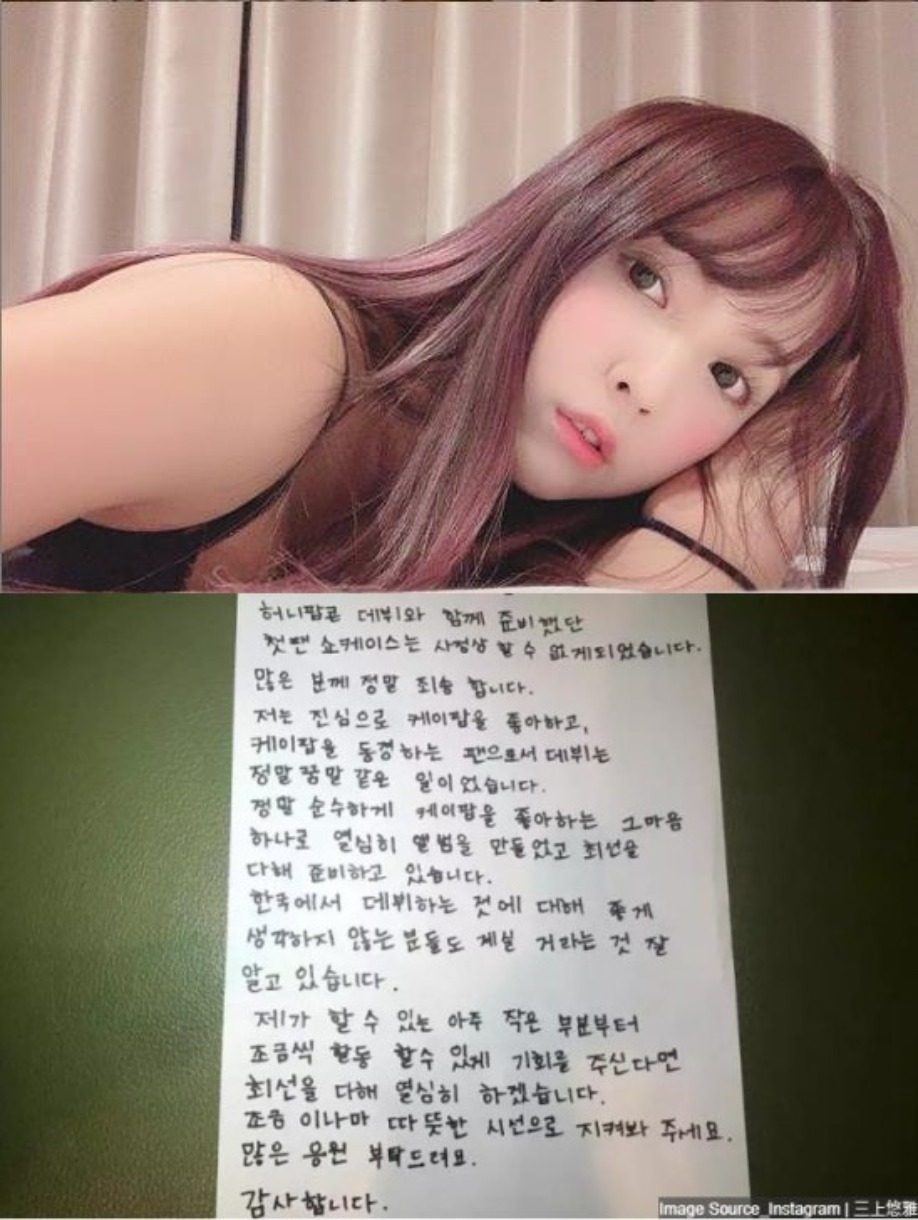 허니팝콘 데뷔와 함께 준비했단
첫팬 쇼케이스는 사정상 할 수 없게되었습니다.
많은 분께 정말 죄송 합니다.
저는 진심으로 케이팝을 좋아하고,
케이팝을 동경하는 팬으로서 데뷔는
정말 꿈말 같은 일이었습니다.
정말 순수하게 케이팝을 좋아하는 그마음
하나로 열심히 앨범을 만들었고 최선을
다해 준비하고 있습니다.
한국에서 데뷔하는 것에 대해 좋게
생각하지 않는 분들도 계실 거라는 것 잘
알고 있습니다.
제가 할 수 있는 아주 작은 부분부터
조금씩 활동 할수 있게 기회를 주신다면
최선을 다해 열심히 하겠습니다.
조금 이나마 따뜻한 시선으로 지켜봐 주세요.
많은 응원 부탁드려요.
감사합니다.
Image Source_Instagram | 三上悠雅